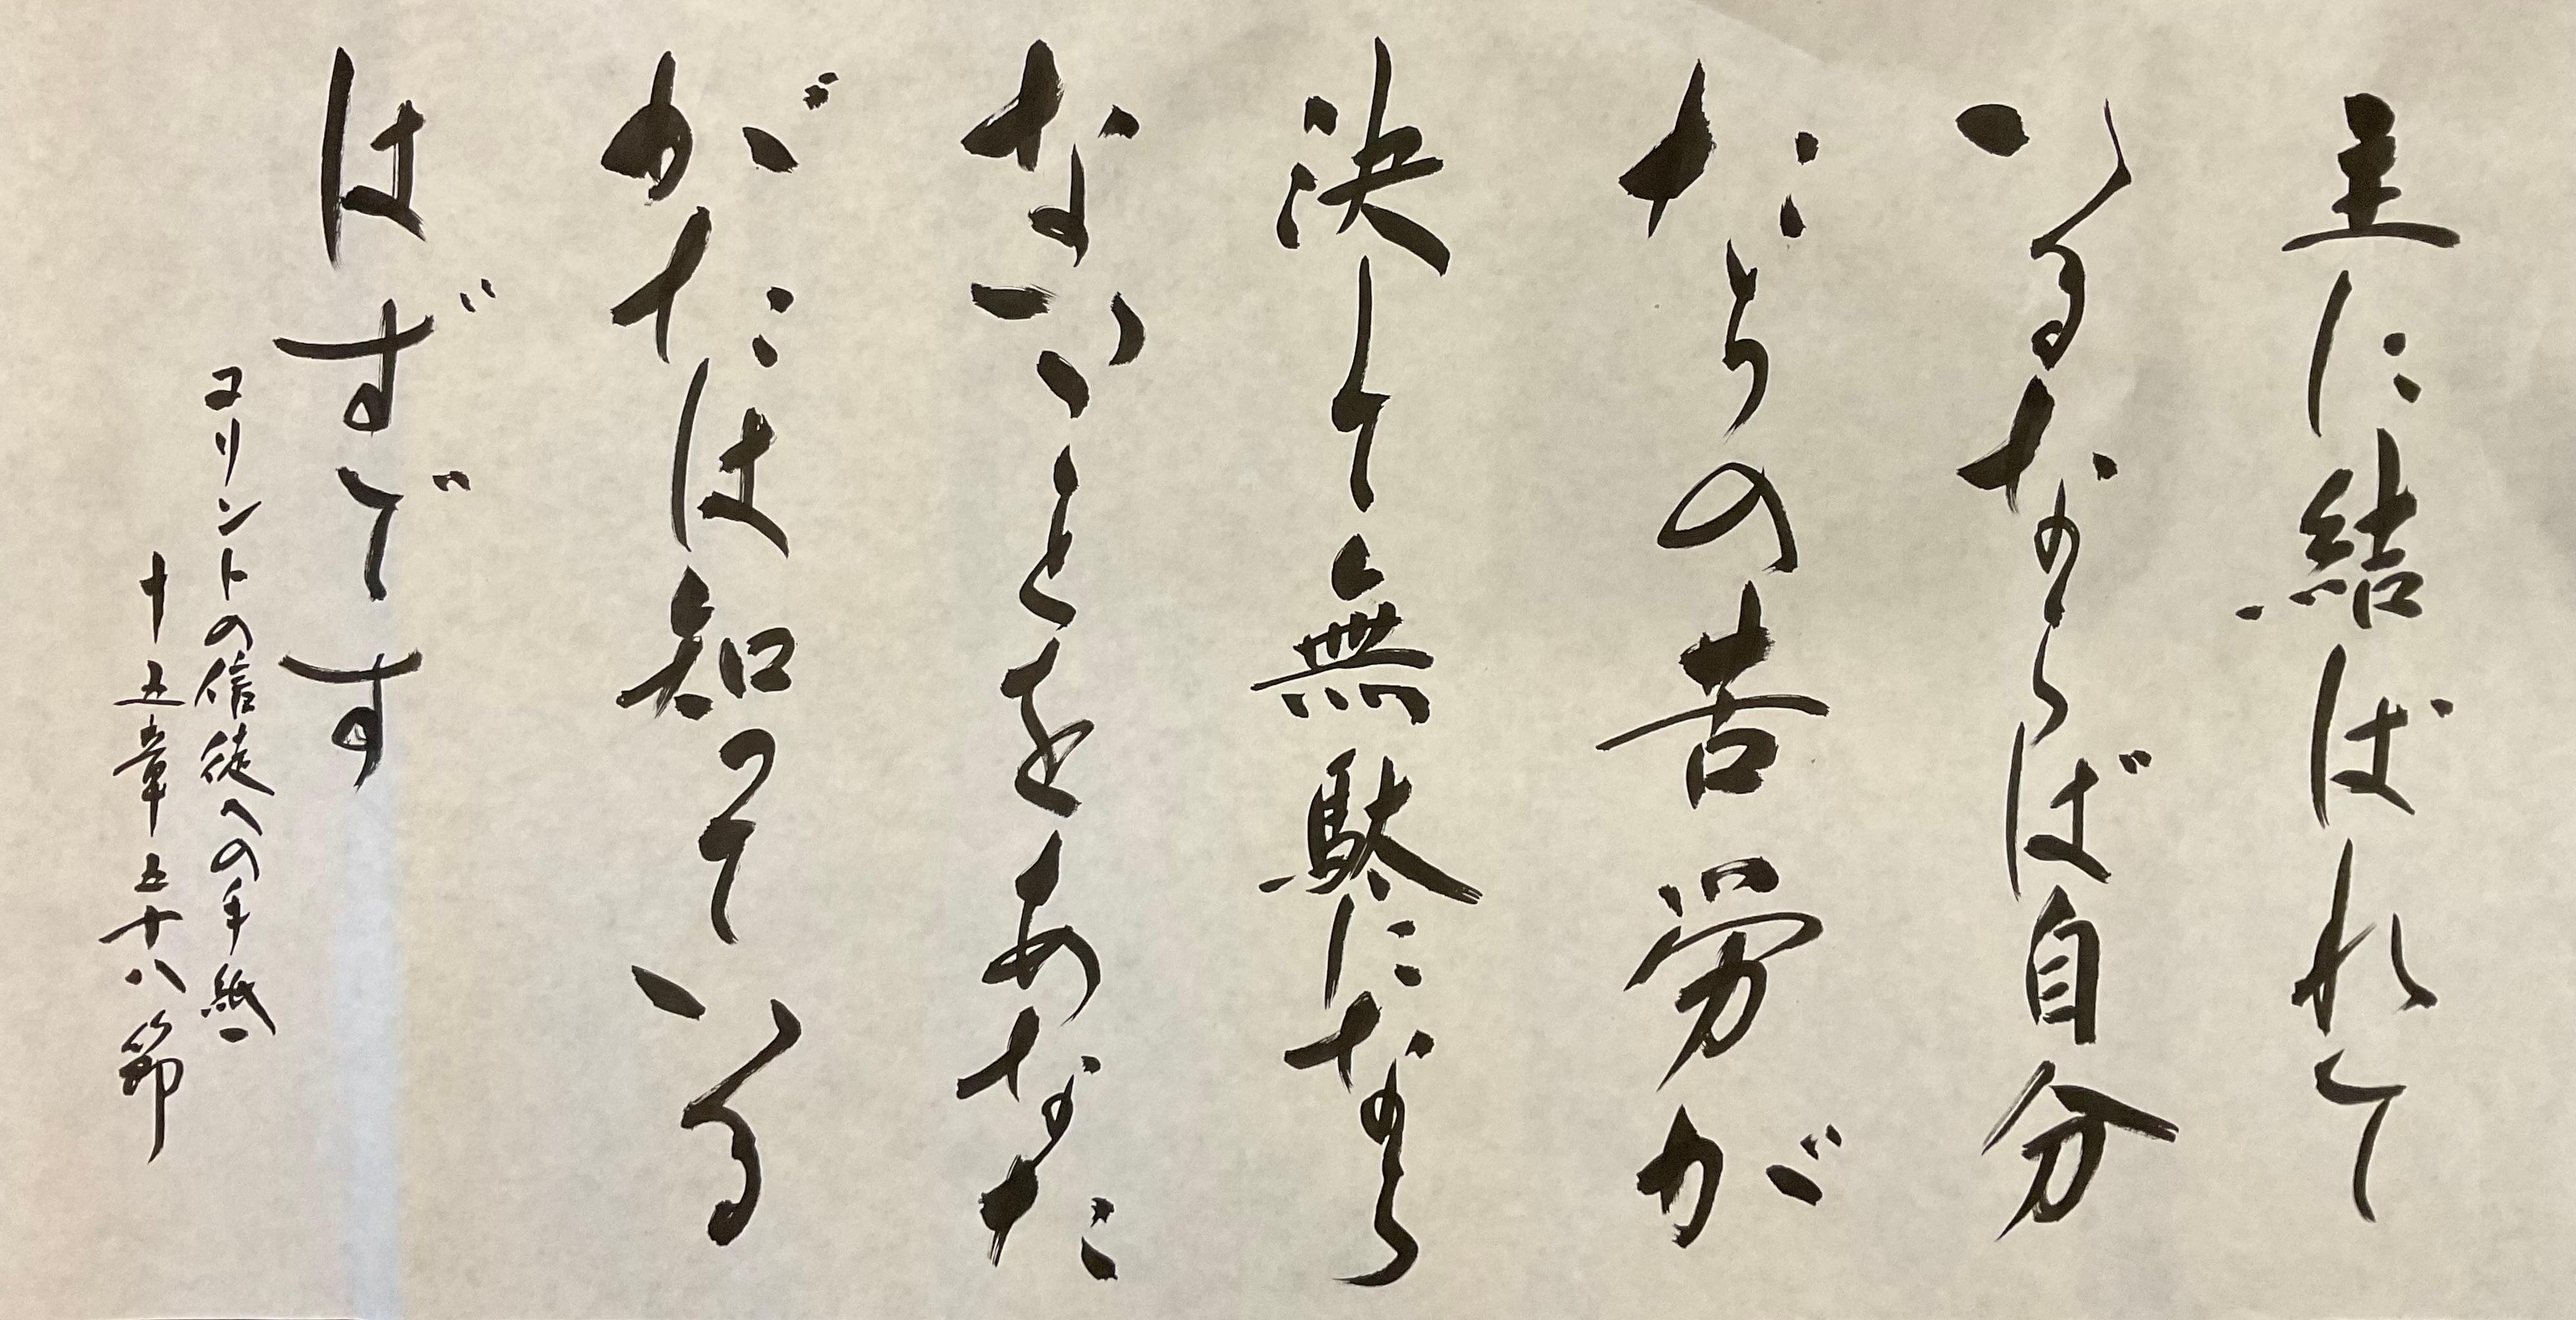 主に結ばれて
いるならば自分
たちの苦労が
決して無駄になら
ないことをあなた
がたは知っている
はずです
コリントの信徒への手紙一
十五章五十八節